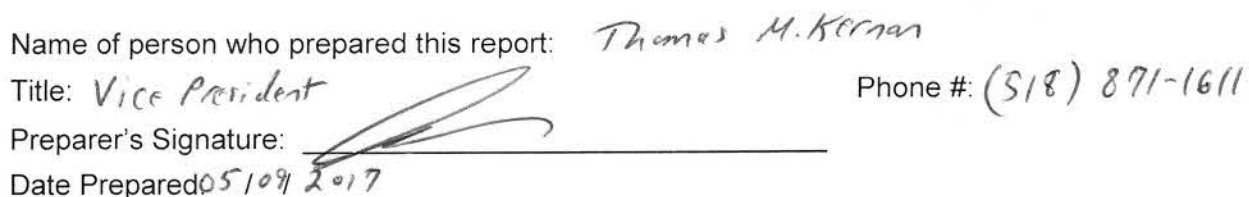 Name of person who prepared this report: Thomas M. Kernan
Title: Vice President Phone #: (518) 871-1611
Preparer's Signature:
Date Prepared 05/09/2017